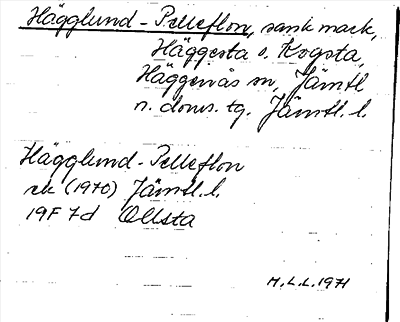 Hägglund - Pelleflon, sank mark,
Häggesta o. Krogsta,
Häggenås sn, Jämtl
n. doms. tg. Jämtl. l.
Hägglund - Pelleflon
ek (1970) Jämtl. l.
19F 7d Ollsta
M.L.L. 1971